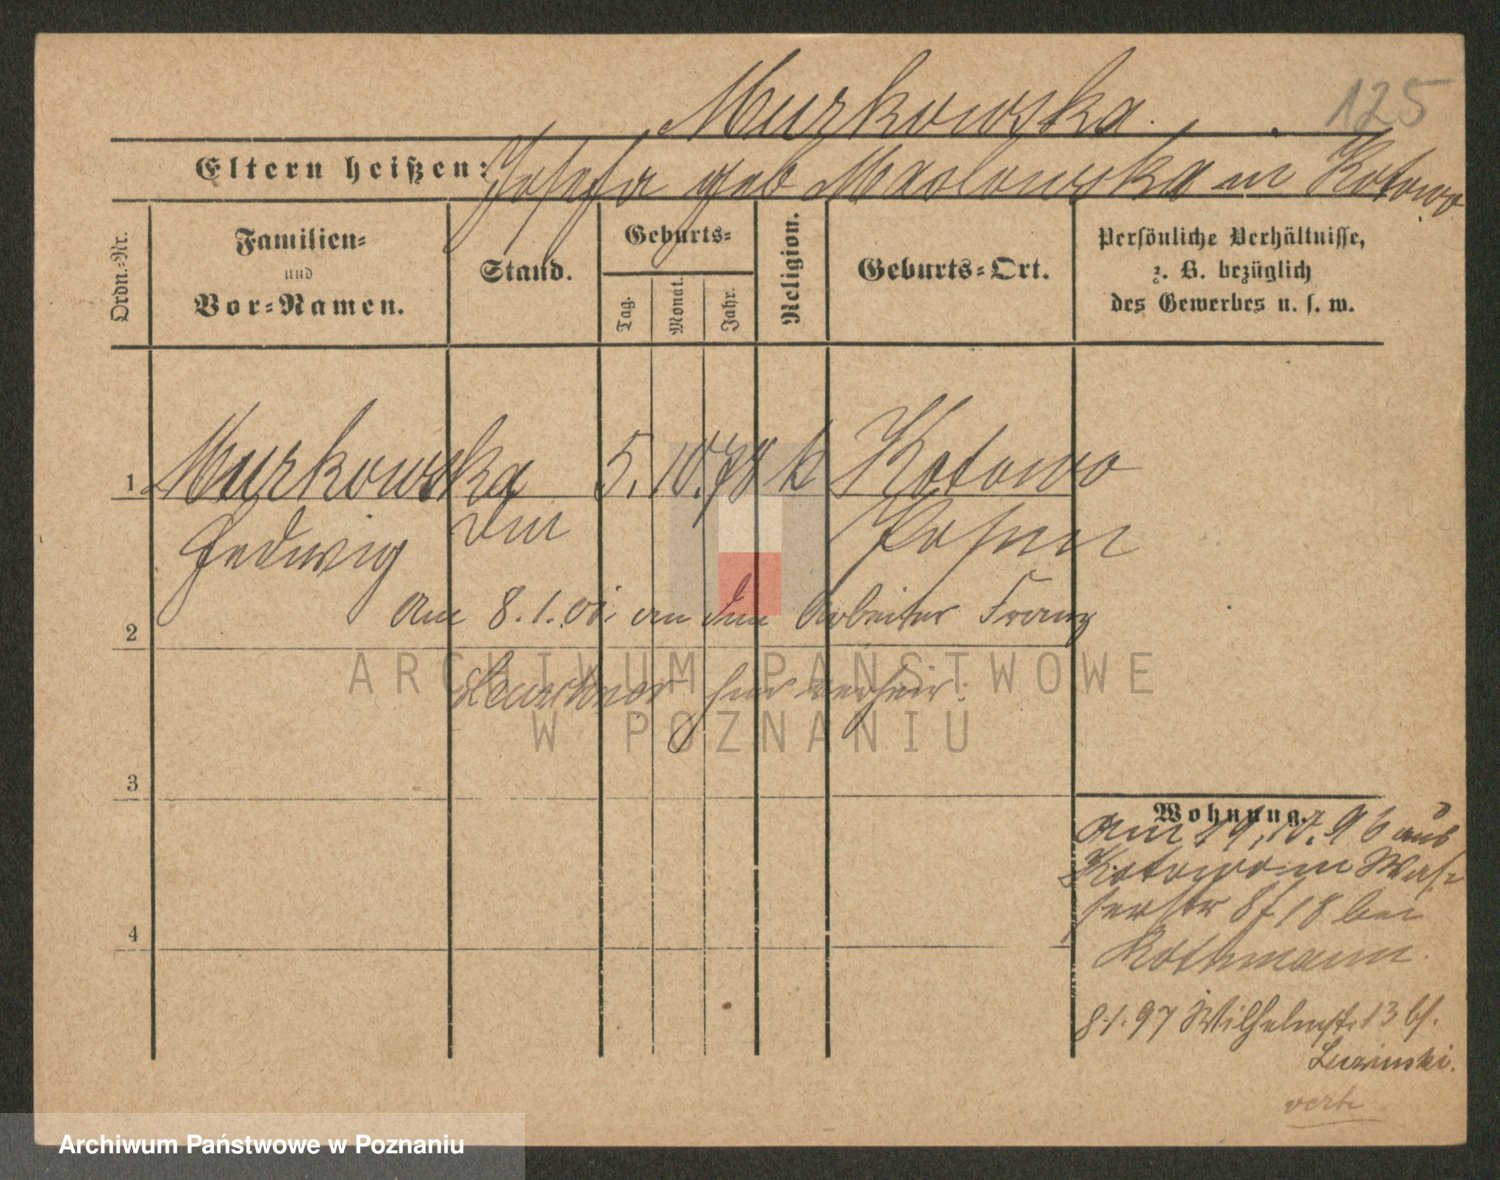 125
Murkowska.
Eltern heißen: Josefa geb Maslowska in Kotowo
Ordn.-Nr.
Familien-
und
Vor-Namen.
Stand.
Geburts-
Tag.
Monat.
Jahr.
Religion.
Geburts-Ort.
Persönliche Verhältnisse,
z. B. bezüglich
des Gewerbes u. s. w.
1 Murkowska 5. 10. 78 k Kotowo
Hedwig Posen
am 8.1.01 an den Arbeiter Franz
2
hier verheir.
3
4
Wohnung.
am 29.10.96 aus
Kotowo in Was-
serstr 8/18 bei
Rothmann.
8.1.97 Wilhelmstr. 13 bf.
Luzinski.
verte
ARCHIWUM PAŃSTWOWE
W POZNANIU
Archiwum Państwowe w Poznaniu